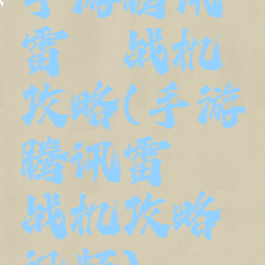 手游腾讯
雷 战机
攻略(手游
腾讯雷
战机攻略
视频)